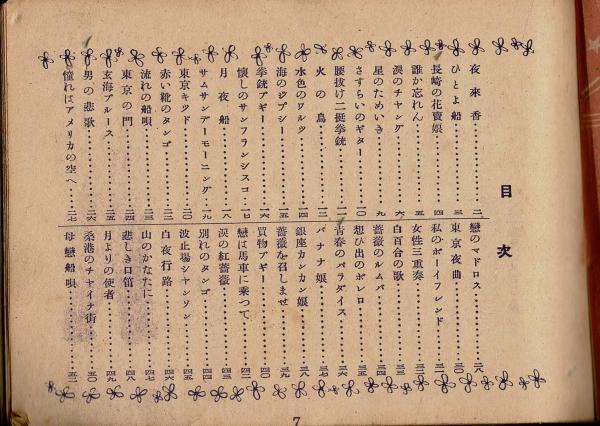 目次
夜來香……二
ひとよ船……三
長崎の花賣娘……四
誰か忘れん……五
涙のチャング……六
星のためいき……九
さすらいのギター……一〇
腰抜け二挺拳銃……一一
火の鳥……一二
水色のワルツ……一三
海のジプシー……一四
拳銃ブギー……一六
懐しのサンフランシスコ……一七
月夜船……一八
サムサンデーモーニング……一九
東京キッド……二〇
赤い靴のタンゴ……二二
流れの船唄……二三
東京の門……二四
玄海ブルース……二五
男の悲歌……二六
憧れはアメリカの空へ……二七
戀のマドロス……二八
東京夜曲……三〇
私のボーイフレンド……三一
女性三重奏……三二
白百合の歌……三三
薔薇のルムバ……三四
想ひ出のボレロ……三五
青春のパラダイス……三六
バナナ娘……三七
銀座カンカン娘……三八
薔薇を召しませ……三九
買物ブギー……四〇
戀は馬車に乘つて……四二
涙の紅薔薇……四三
別れのタンゴ……四四
波止場シヤンソン……四五
白夜行路……四六
山のかなたに……四七
悲しき口笛……四八
月よりの使者……四九
桑港のチャイナ街……五〇
母戀船唄……五二
7